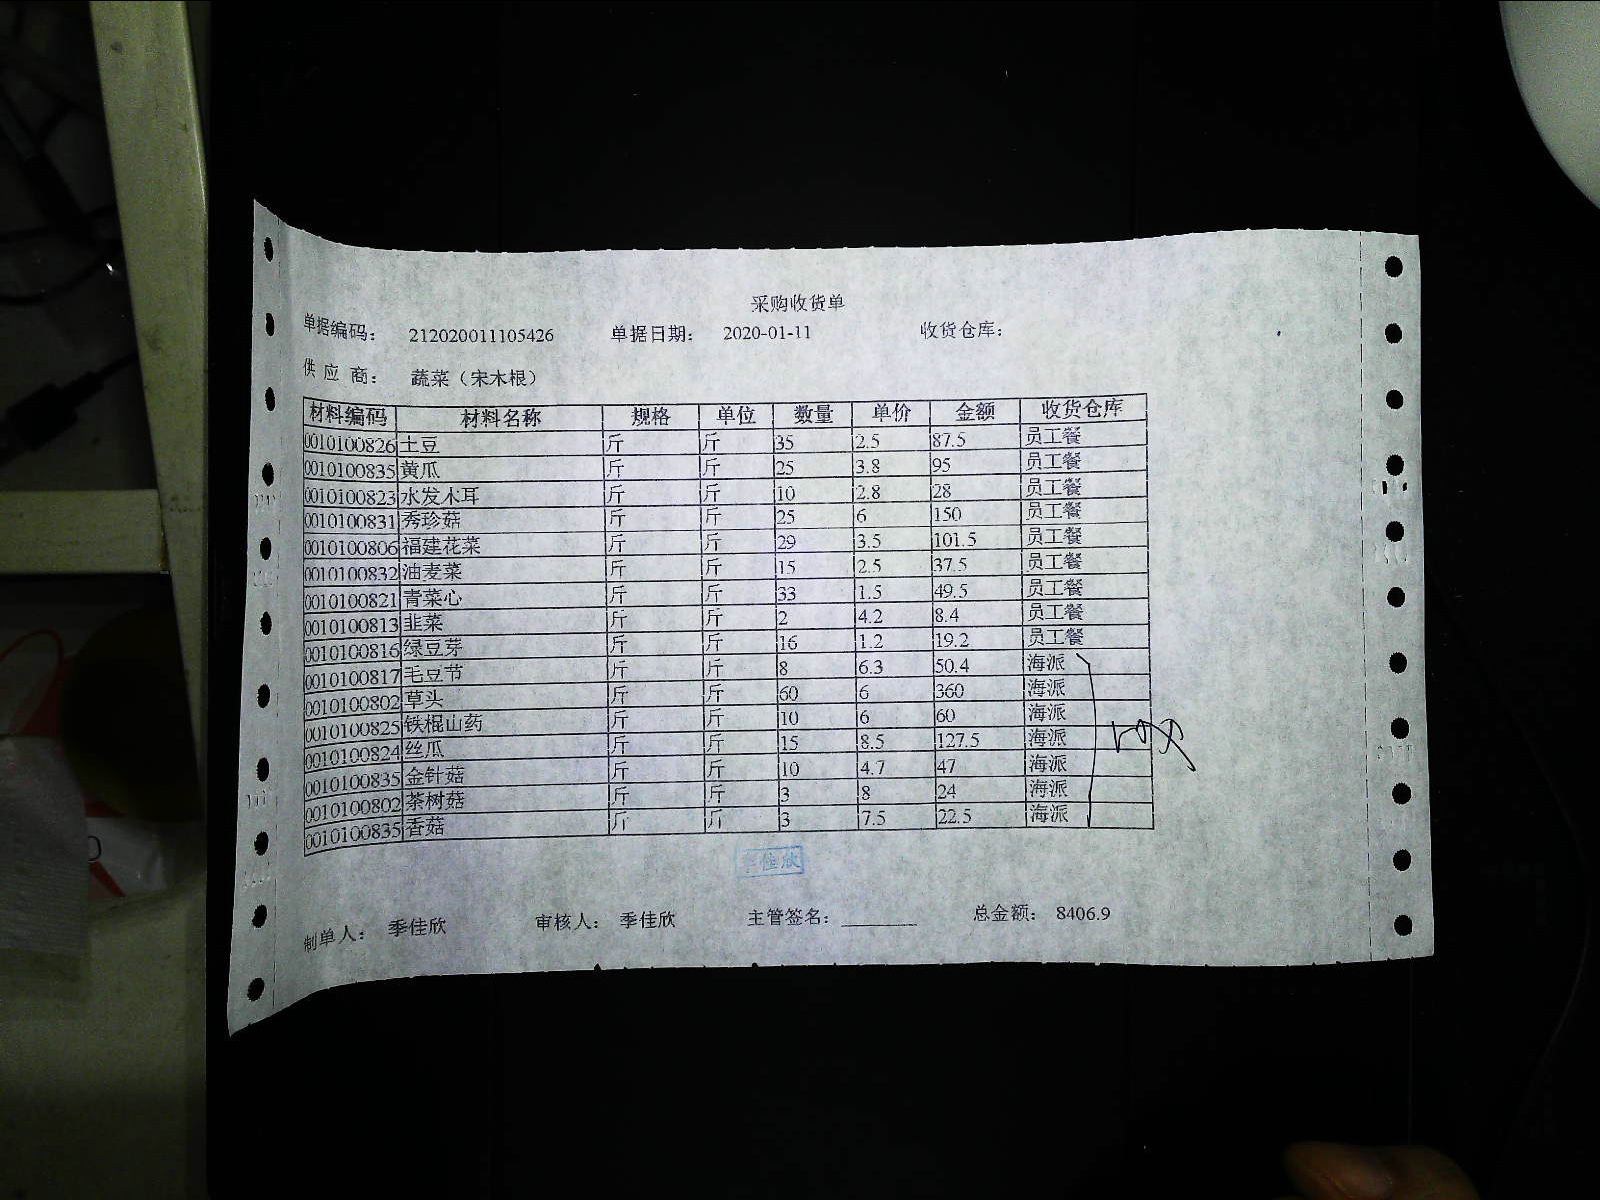 采购收货单
单据编码: 212020011105426 单据日期: 2020-01-11 收货仓库:
供应商: 蔬菜（宋木根）
材料编码 材料名称 规格 单位 数量 单价 金额 收货仓库
0010100826 土豆 斤 斤 35 2.5 87.5 员工餐
0010100835 黄瓜 斤 斤 25 3.8 95 员工餐
0010100823 水发木耳 斤 斤 10 2.8 28 员工餐
0010100831 秀珍菇 斤 斤 25 6 150 员工餐
0010100806 福建花菜 斤 斤 29 3.5 101.5 员工餐
0010100832 油麦菜 斤 斤 15 2.5 37.5 员工餐
0010100821 青菜心 斤 斤 33 1.5 49.5 员工餐
0010100813 韭菜 斤 斤 2 4.2 8.4 员工餐
0010100816 绿豆芽 斤 斤 16 1.2 19.2 员工餐
0010100817 毛豆节 斤 斤 8 6.3 50.4 海派
0010100802 草头 斤 斤 60 6 360 海派
0010100825 铁棍山药 斤 斤 10 6 60 海派
0010100824 丝瓜 斤 斤 15 8.5 127.5 海派
0010100835 金针菇 斤 斤 10 4.7 47 海派
0010100802 茶树菇 斤 斤 3 8 24 海派
0010100835 香菇 斤 斤 3 7.5 22.5 海派
佳欣
制单人: 季佳欣 审核人: 季佳欣 主管签名: 总金额: 8406.9